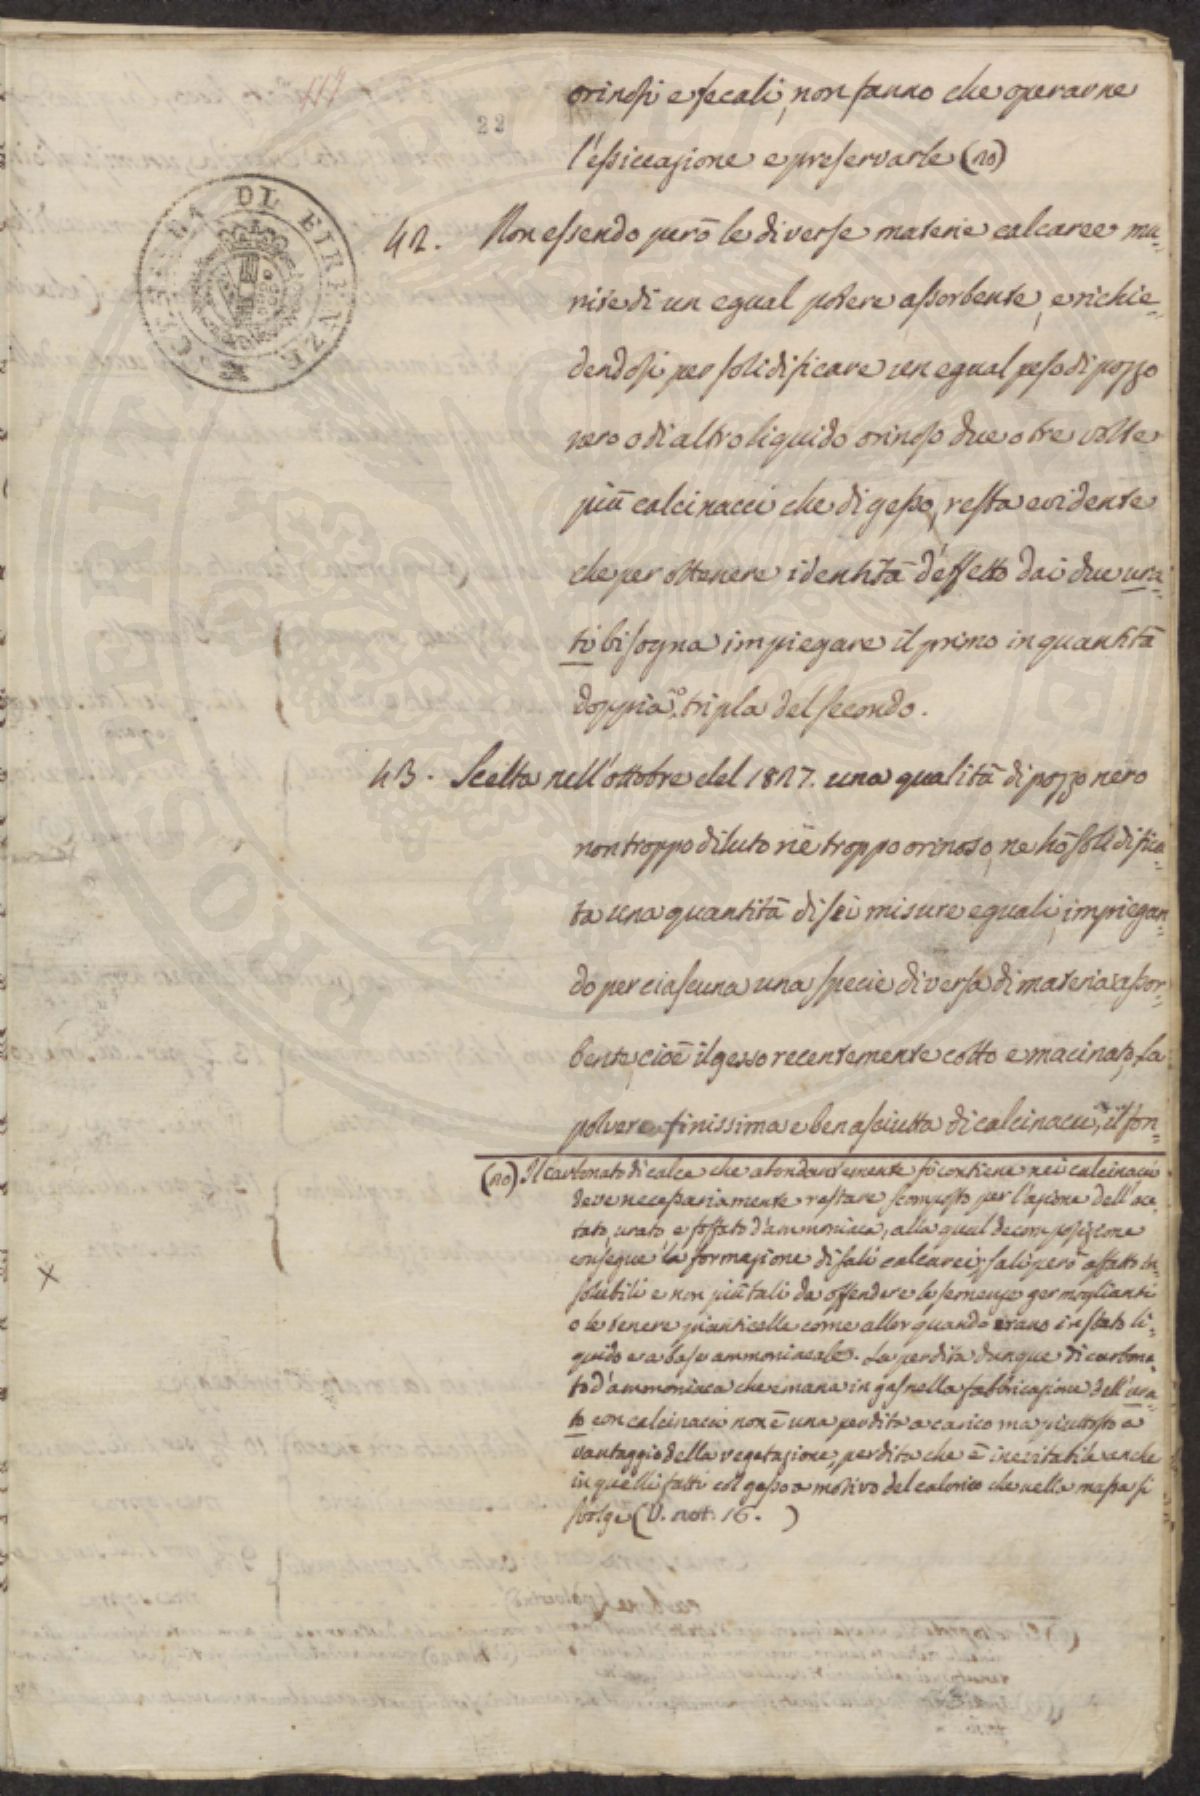 117
22
orinosi e fecali, non fanno che operarne
l'essiccazione e preservarle (20)
42. Non essendo però le diverse materie calcaree mu=
nite di un egual potere assorbente, e richie=
dendosi per solidificare un egual peso di pozzo
nero o di altro liquido orinoso due o tre volte
più calcinacci che di gesso, resta evidente
che per ottenere identità d'effetto dai due ura=
ti bisogna impiegare il primo in quantità
doppia o tripla del secondo.
43. Scelta nell'ottobre del 1827. una qualità di pozzo nero
non troppo diluto nè troppo orinoso, ne hò solidifica=
ta una quantità di sei misure eguali, impiegan=
do per ciascuna una specie diversa di materia assor=
bente, cioè il gesso recentemente cotto e macinato, la
polvere finissima e ben asciutta di calcinacci, il fon=
(20) Il carbonato di calce che abondantemente si contiene nei calcinacci
deve necessariamente restare scomposto per l'azione dell'ace=
tato, urato e fosfato d'ammoniaca, alla qual decomposizione
consegue la formazione di sali calcarei, sali però affatto in=
solubili e non più tali da offendere le semenze germoglianti
o le tenere pianticelle come allor quando erano in stato li=
quido e a base ammoniacale. La perdita dunque di carbona=
to d'ammoniaca che emana in gas nella fabbricazione dell'ura=
to con calcinacci non è una perdita a carico ma piuttosto a
vantaggio della vegetazione, perdita che è inevitabile anche
in quelli fatti col gesso a motivo del calorico che nella massa si
svolge (V. not. 16. )
PROSPERITAS PUBLICA
ACCADEMIA DI FIRENZE